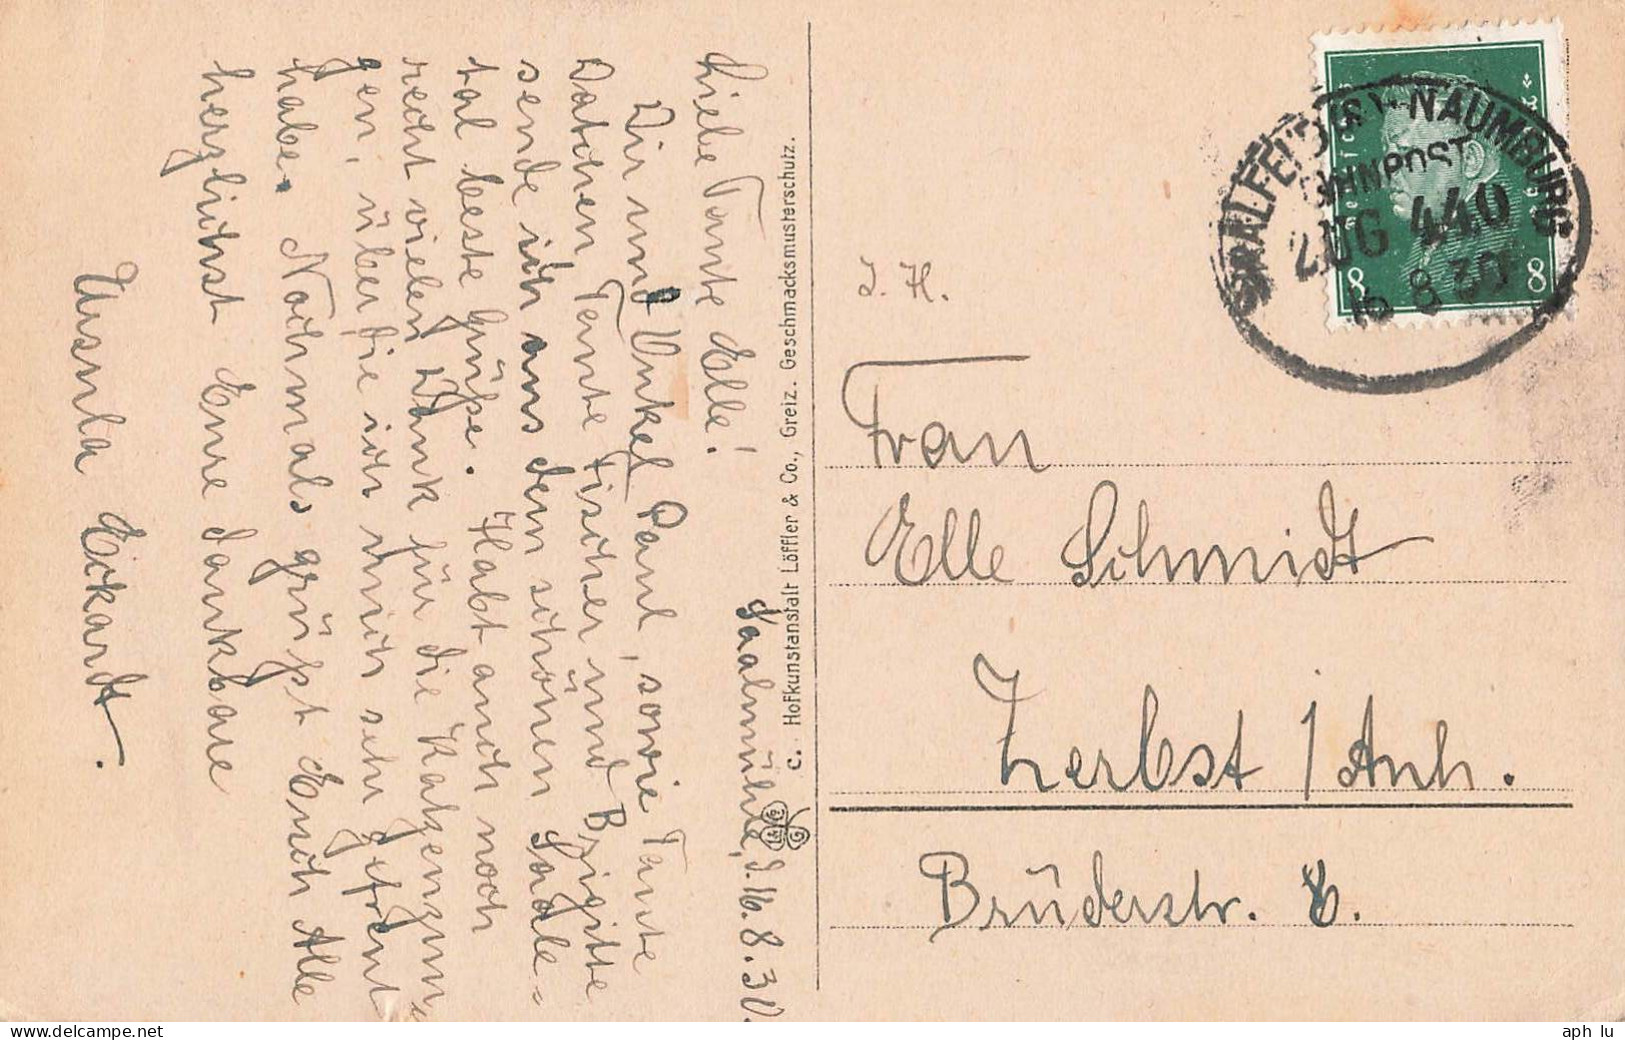 Saalmühle, d. 16.8.30.
Liebe Tante Elle!
Dir und Onkel Paul, sowie Tante
Datchen, Tante Fischer und Brigitte
sende ich aus dem schönen Saale-
tal beste Grüße. Habt auch noch
recht vielen Dank für die Katzenzun-
gen, über die ich mich sehr gefreut
habe. Nochmals grüßt Euch Alle
herzlichst Eure dankbare
Ursula Eckardt.
C.. Hofkunstanstalt Löffler & Co., Greiz. Geschmacksmusterschutz.
SAALFELD (S) - NAUMBURG
BAHNPOST
ZUG 440
16 8 30
8 8
Frau
Elle Schmidt
Zerbst / Anh.
Brüderstr. 8.
aph lu